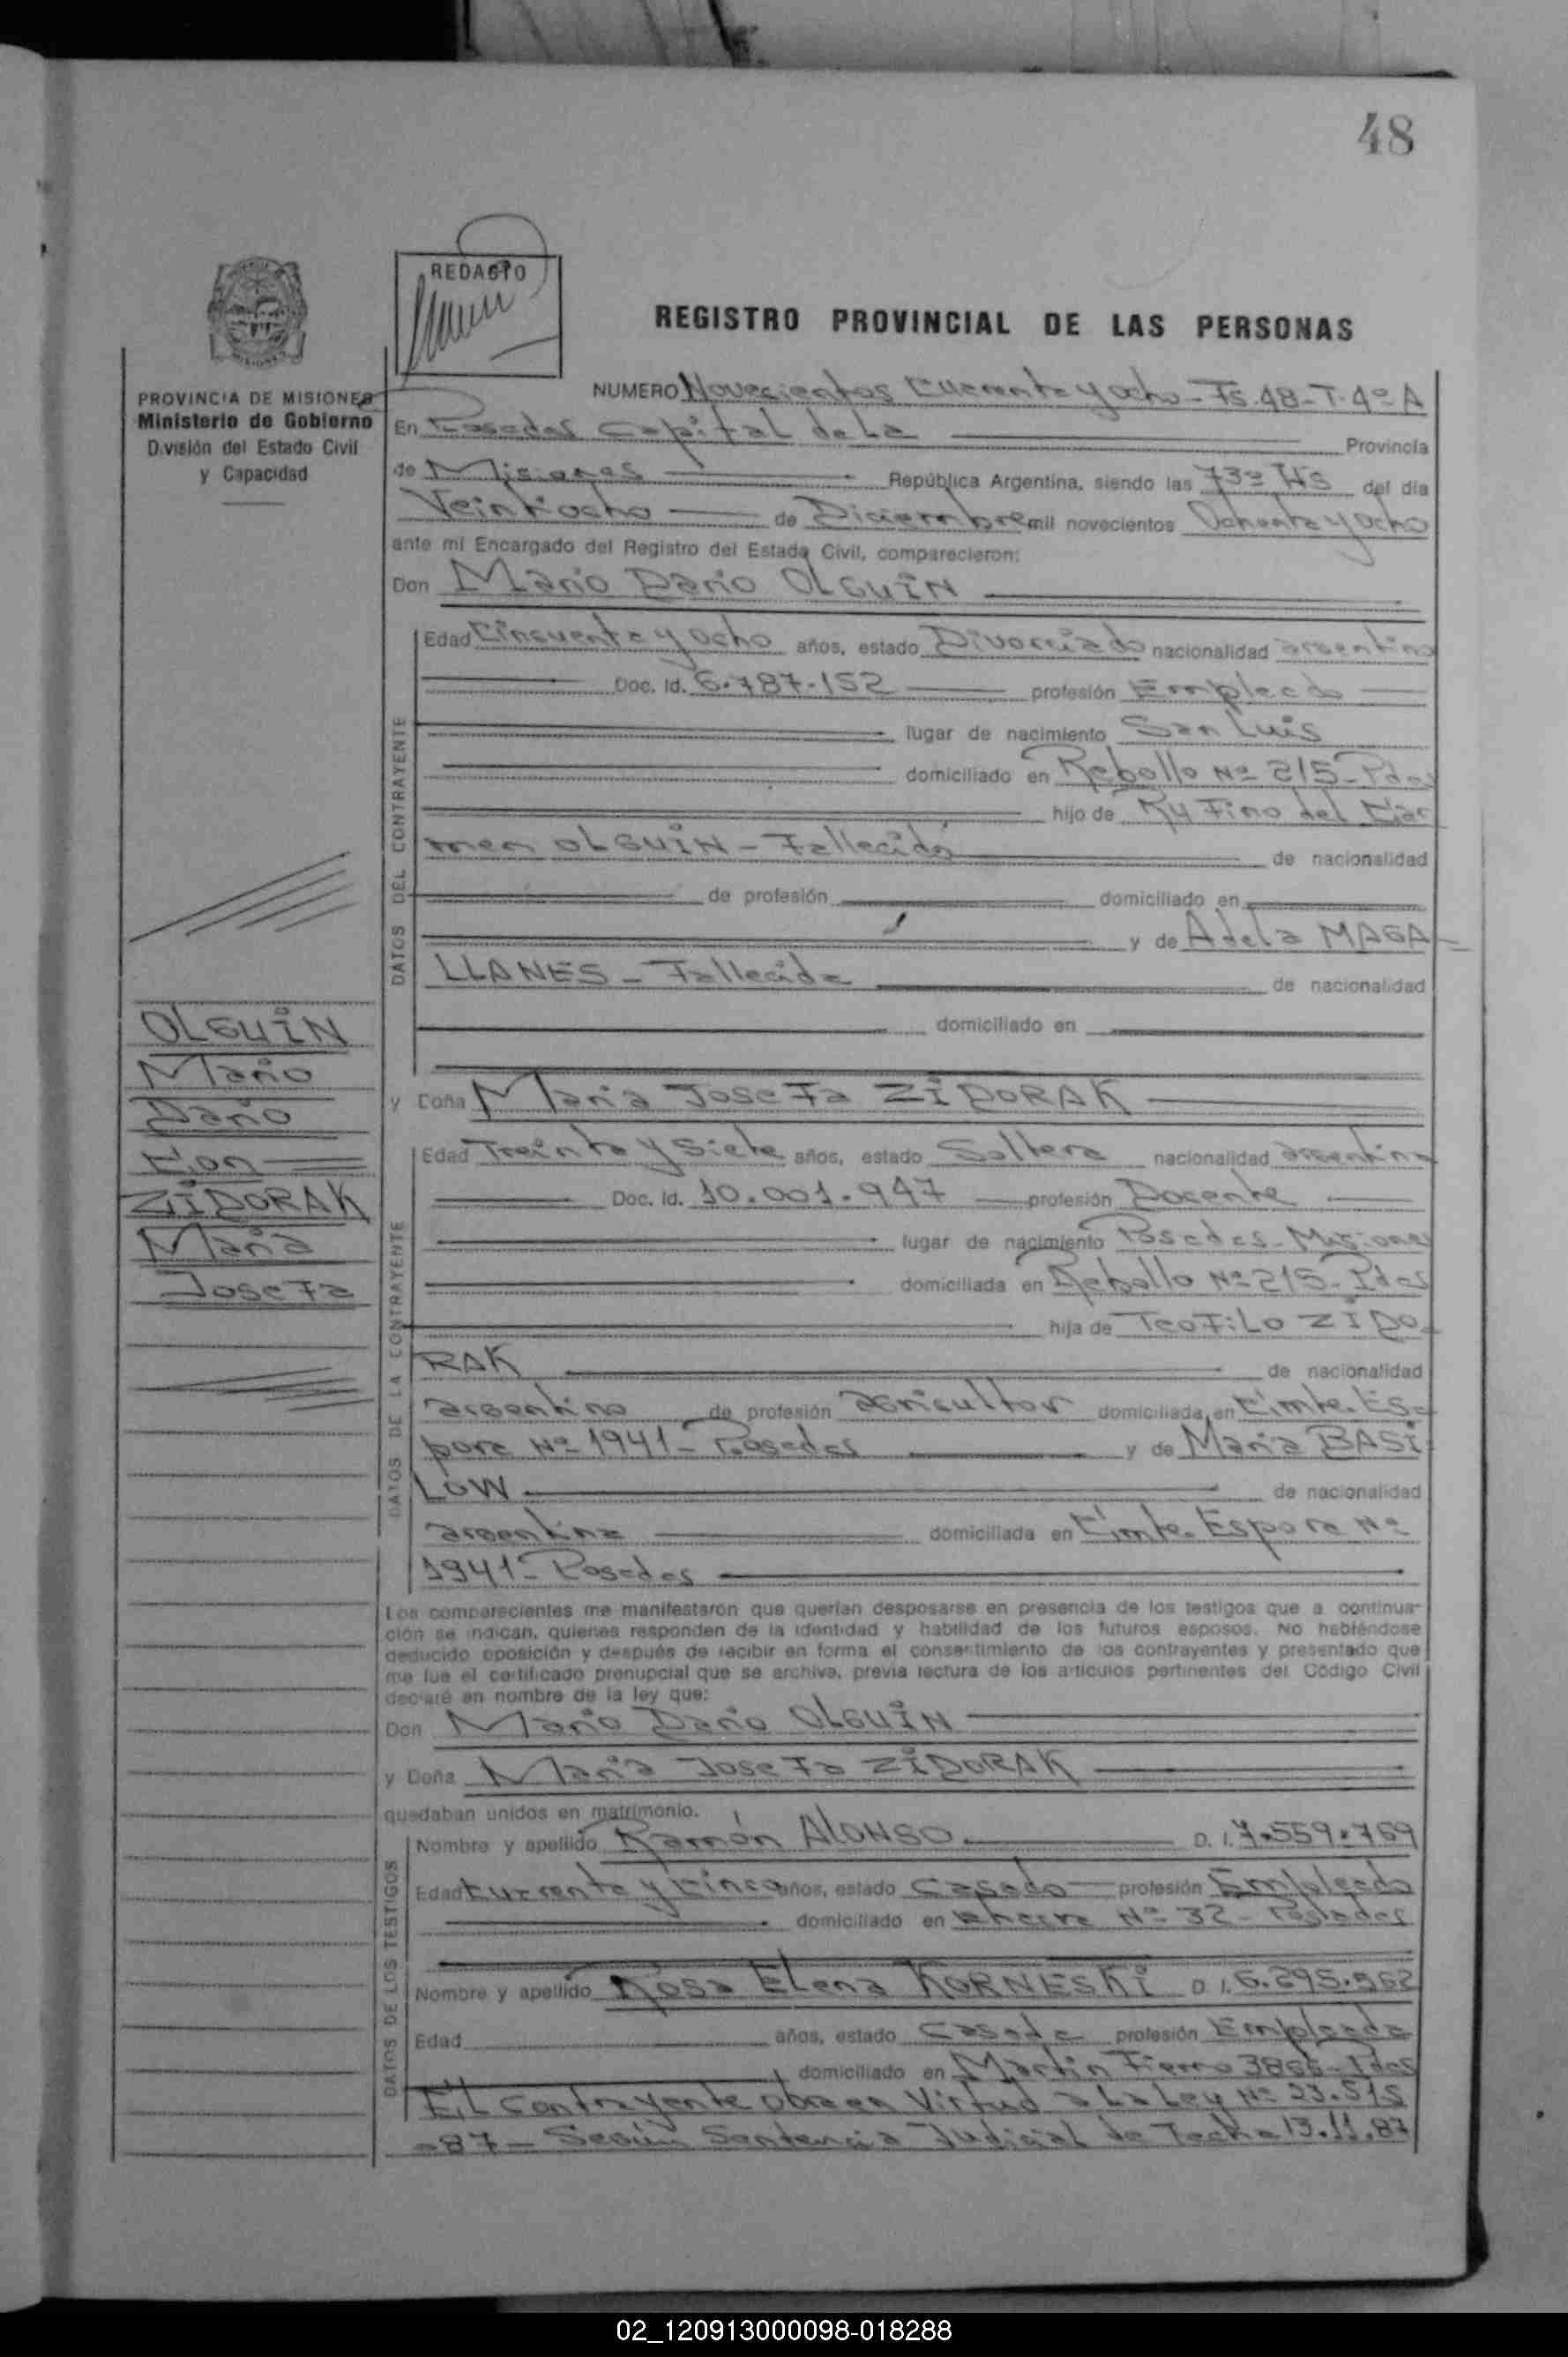 48
REDACTO
REGISTRO PROVINCIAL DE LAS PERSONAS
PROVINCIA DE MISIONES
Ministerio de Gobierno
División del Estado Civil
y Capacidad
NUMERO Novecientos Cuarenta y ocho - Fs. 48 - T. 4º A
En Posadas Capital de La Provincia
de Misiones República Argentina, siendo las Hs del día
Veintiocho de Diciembre mil novecientos Ochenta y Ocho
ante mí Encargado del Registro del Estado Civil, comparecieron:
Don Mario Dario OLGUIN
DATOS DEL CONTRAYENTE
Edad Cincuenta y Ocho años, estado Divorciado nacionalidad argentino
Doc. Id. 6.787.152 profesión Empleado
lugar de nacimiento San Luis
domiciliado en Rebollo Nº 215 - Pdas
hijo de Rufino del Car
men OLGUIN - Fallecido de nacionalidad
de profesión domiciliado en
y de Adela MAGA-
LLANES - Fallecida de nacionalidad
domiciliado en
OLGUIN
Mario
Dario
Con
ZIDORAK
Maria
Josefa
y Doña Maria Josefa ZIDORAK
DATOS DE LA CONTRAYENTE
Edad Treinta y Siete años, estado Soltera nacionalidad argentina
Doc. Id. 10.001.947 profesión Docente
lugar de nacimiento Posadas - Misiones
domiciliada en Rebollo Nº 215 - Pdas
hija de Teofilo ZIDO-
RAK de nacionalidad
argentino de profesión agricultor domiciliada en Cmte. Es-
pora Nº 1941 - Posadas y de Maria BASI-
LOW de nacionalidad
argentina domiciliada en Cmte. Espora Nº
1941 - Posadas
Los comparecientes me manifestaron que querían desposarse en presencia de los testigos que a continua-
ción se indican, quienes responden de la identidad y habilidad de los futuros esposos. No habiéndose
deducido oposición y después de recibir en forma el consentimiento de los contrayentes y presentado que
me fue el certificado prenupcial que se archiva, previa lectura de los artículos pertinentes del Código Civil
declaré en nombre de la ley que:
Don Mario Dario OLGUIN
y Doña Maria Josefa ZIDORAK
quedaban unidos en matrimonio.
DATOS DE LOS TESTIGOS
Nombre y apellido Ramón ALONSO D. I. 7.559.769
Edad Cuarenta y Cinco años, estado Casado profesión Empleado
domiciliado en Chacra Nº 32 - Posadas
Nombre y apellido Rosa Elena KORNESKI D. I. 6.295.962
Edad años, estado Casada profesión Empleada
domiciliado en Martin Fierro - Pdas
El Contrayente obra en Virtud a La Ley Nº 23.515
-87- Según Sentencia Judicial de Fecha 13.11.87
02_120913000098-018288